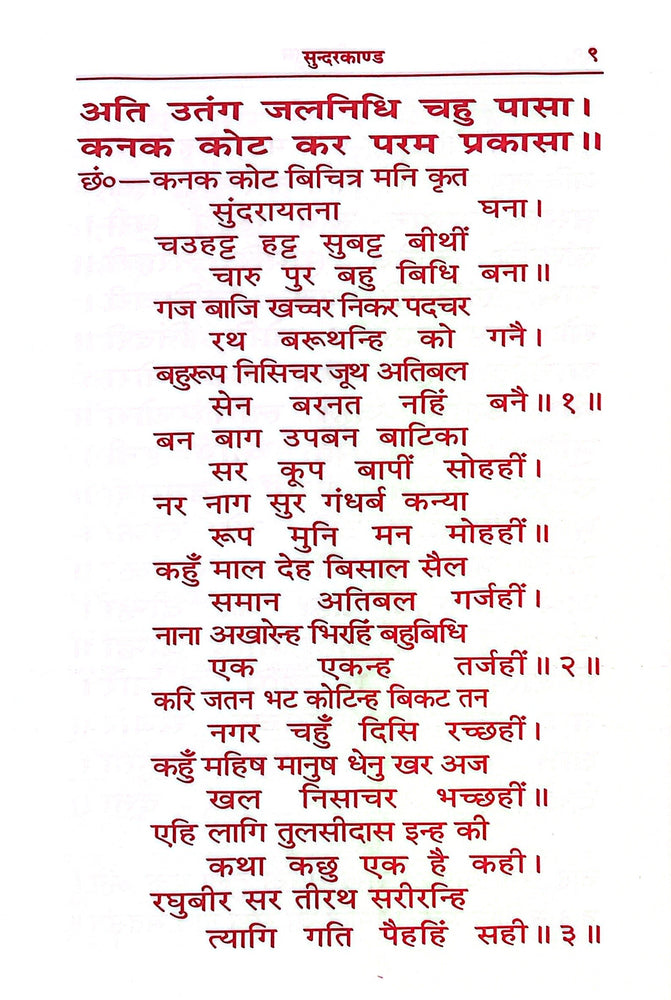 सुन्दरकाण्ड ९
अति उतंग जलनिधि चहु पासा।
कनक कोट कर परम प्रकासा॥
छं०—कनक कोट बिचित्र मनि कृत
सुंदरायतना घना।
चउहट्ट हट्ट सुबट्ट बीथीं
चारु पुर बहु बिधि बना॥
गज बाजि खच्चर निकर पदचर
रथ बरूथन्हि को गनै।
बहुरूप निसिचर जूथ अतिबल
सेन बरनत नहिं बनै॥ १॥
बन बाग उपबन बाटिका
सर कूप बापीं सोहहीं।
नर नाग सुर गंधर्ब कन्या
रूप मुनि मन मोहहीं॥
कहुँ माल देह बिसाल सैल
समान अतिबल गर्जहीं।
नाना अखारेन्ह भिरहिं बहुबिधि
एक एकन्ह तर्जहीं॥ २॥
करि जतन भट कोटिन्ह बिकट तन
नगर चहुँ दिसि रच्छहीं।
कहुँ महिष मानुष धेनु खर अज
खल निसाचर भच्छहीं॥
एहि लागि तुलसीदास इन्ह की
कथा कछु एक है कही।
रघुबीर सर तीरथ सरीरन्हि
त्यागि गति पैहहिं सही॥ ३॥